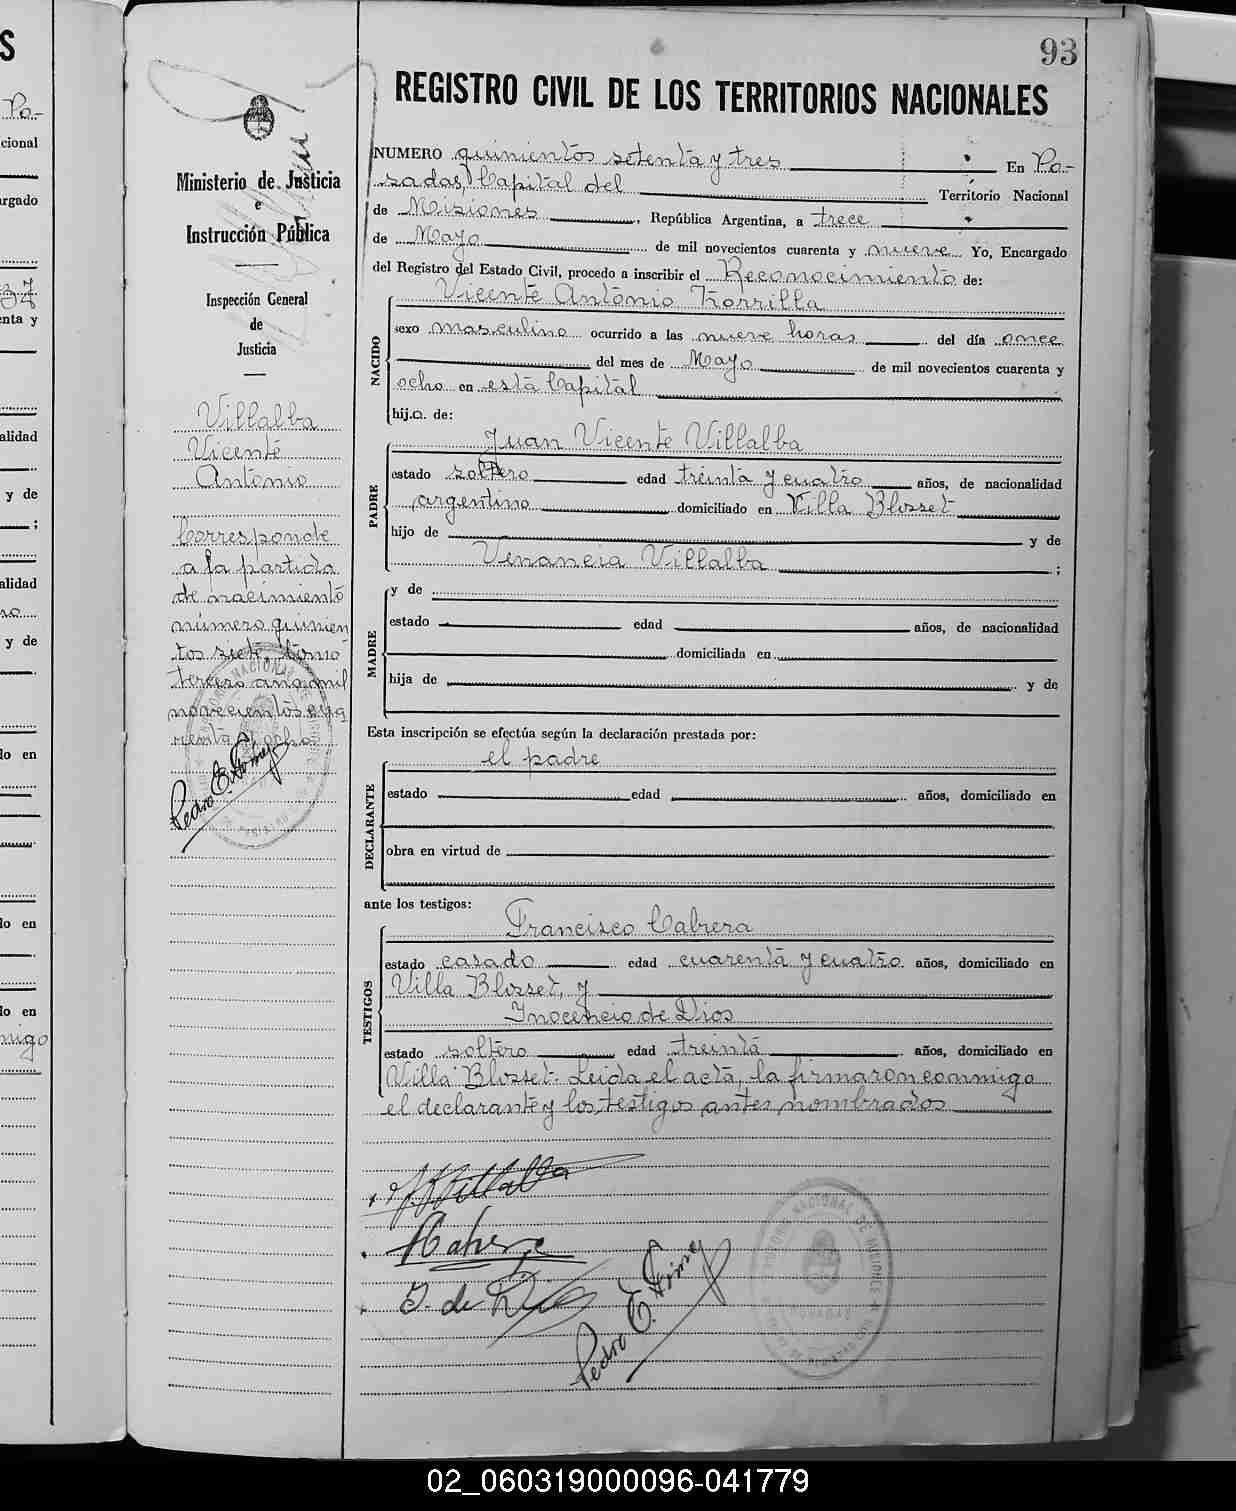 93
REGISTRO CIVIL DE LOS TERRITORIOS NACIONALES
Ministerio de Justicia
e
Instrucción Pública
Inspección General
de
Justicia
Villalba
Vicente
Antonio
Corresponde
a la partida
de nacimiento
número quinien
tos siete, tomo
tercero año mil
novecientos cua
renta y ocho
Pedro E.
NUMERO quinientos setenta y tres En Po-
sadas, Capital del Territorio Nacional
de Misiones, República Argentina, a trece
de Mayo de mil novecientos cuarenta y nueve Yo, Encargado
del Registro del Estado Civil, procedo a inscribir el Reconocimiento de:
NACIDO
Vicente Antonio Zorrilla
sexo masculino ocurrido a las nueve horas del día once
del mes de Mayo de mil novecientos cuarenta y
ocho en esta Capital
hijo de:
PADRE
Juan Vicente Villalba
estado soltero edad treinta y cuatro años, de nacionalidad
argentino domiciliado en Villa Blosset
hijo de y de
Venancia Villalba ;
MADRE
y de
estado edad años, de nacionalidad
domiciliada en
hija de y de
Esta inscripción se efectúa según la declaración prestada por:
DECLARANTE
el padre
estado edad años, domiciliado en
obra en virtud de
ante los testigos:
TESTIGOS
Francisco Cabrera
estado casado edad cuarenta y cuatro años, domiciliado en
Villa Blosset, y
Inocencio de Dios
estado soltero edad treinta años, domiciliado en
Villa Blosset. Leida el acta, la firmaron conmigo
el declarante y los testigos antes nombrados
J. V. Villalba
I. de Dios
Pedro E.
02_060319000096-041779